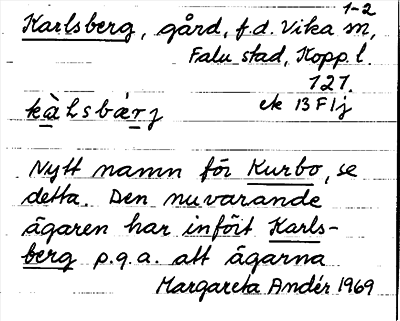 1-2
Karlsberg, gård, f.d. Vika sn,
Falu stad, Kopp. l.
121.
kàLsbærj ek 13F1j
Nytt namn för Kurbo, se
detta. Den nuvarande
ägaren har infört Karls-
berg p.g.a. att ägarna
Margareta Andér 1969